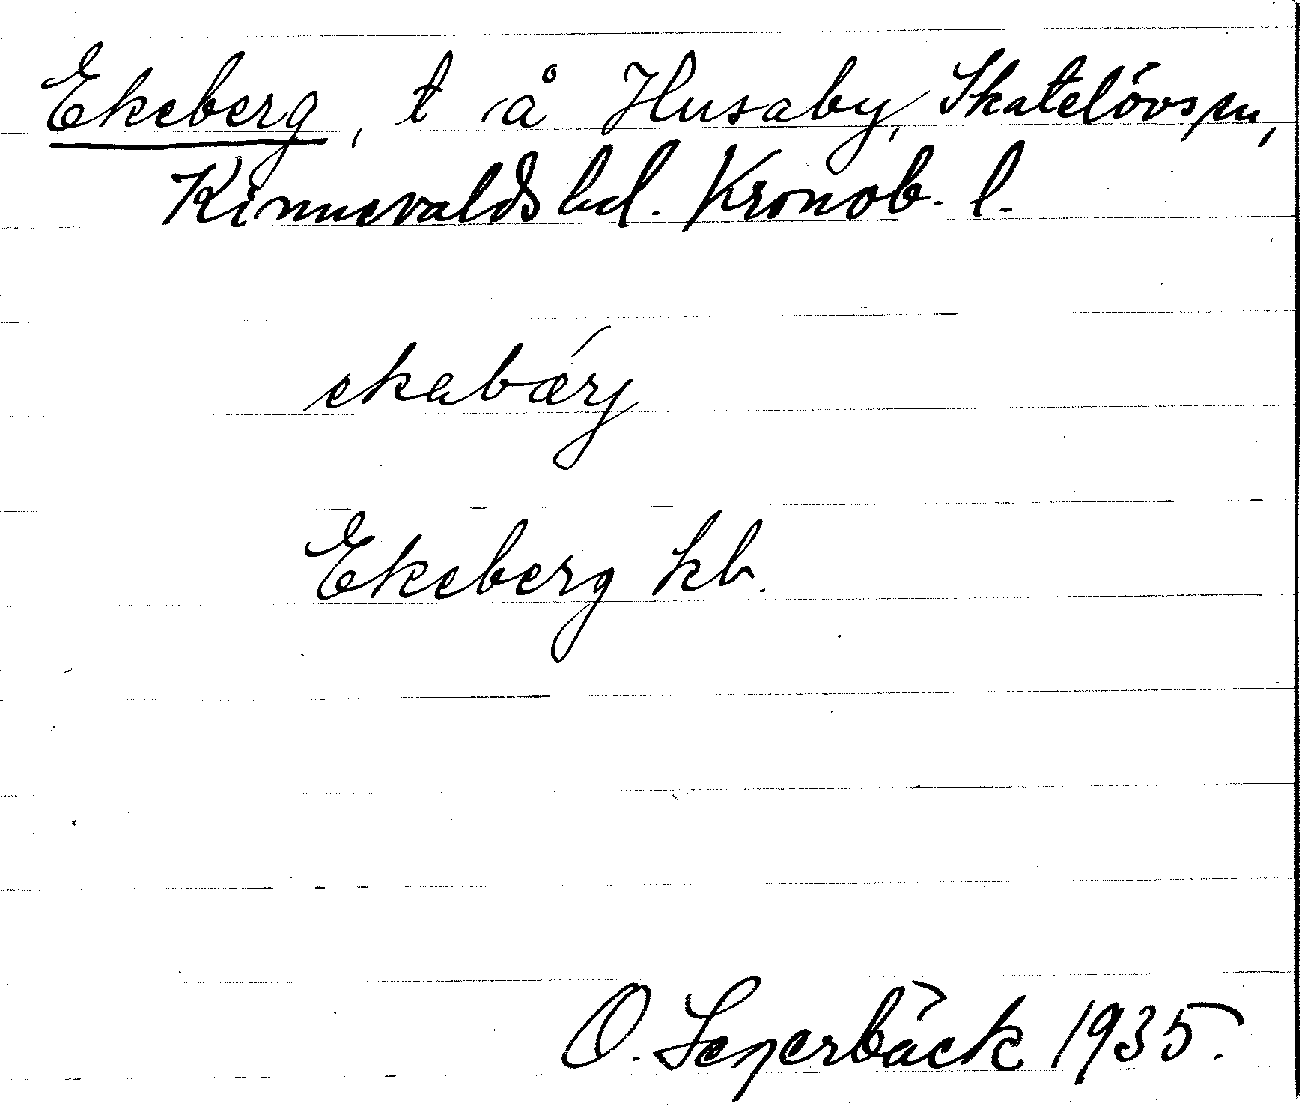 Ekeberg, t å Husaby, Skatelövs sn,
Kinnevalds hd. Kronob. l.
ekabärj
Ekeberg kb.
O. 1935.